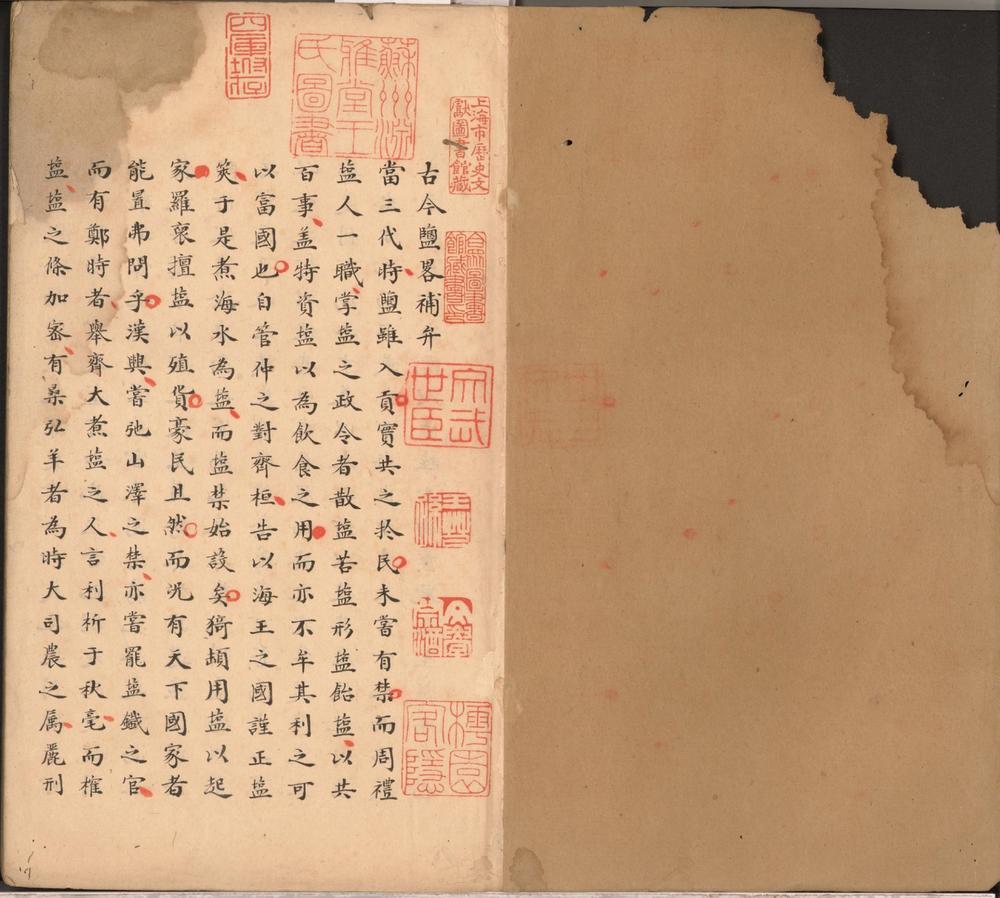 古今鹽畧補弁
當三代時鹽雖入貢實共之扵民未嘗有禁而周禮
塩人一職掌塩之政令者散塩苦塩形塩飴塩以共
百事盖特資塩以為飲食之用而亦不牟其利之可
以富國也自管仲之對齊桓告以海王之國謹正塩
筴于是煮海水為塩而塩禁始設矣猗頓用塩以起
家羅裒擅塩以殖貨豪民且然而况有天下國家者
能置弗問乎漢興嘗弛山澤之禁亦嘗罷塩鐵之官
而有鄭時者舉齊大煮塩之人言利析于秋毫而榷
塩塩之條加宻有桑弘羊者為時大司農之属麗刑
上海市歷史文
獻圖書館藏
合眾圖書
館藏書印
蘇州淵
雅堂王
氏圖書
四庫坿存
文武
世臣
樗園
客隱